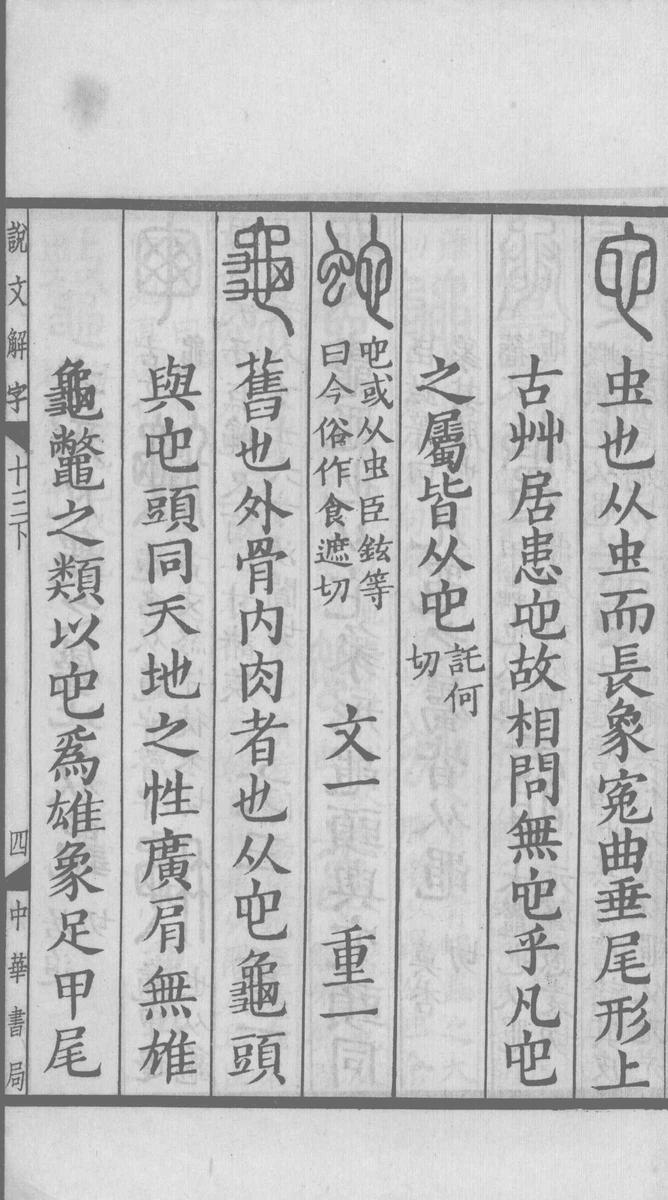 它虫也从虫而長象冤曲垂尾形上
古艸居患它故相問無它乎凡它
之屬皆从它託何
切
蛇它或从虫臣鉉等
曰今俗作食遮切
文一 重一
龜舊也外骨內肉者也从它龜頭
與它頭同天地之性廣肩無雄
龜鼈之類以它爲雄象足甲尾
說文解字 十三下 四 中華書局